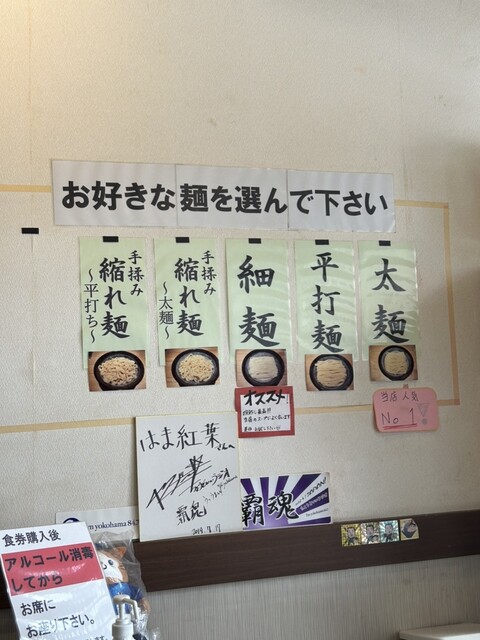 お好きな麺を選んで下さい
太麺
平打麺
細麺
手揉み
縮れ麺
～太麺～
手揉み
縮れ麺
～平打ち～
オススメ!
当店人気
No 1!
はま紅葉さんへ
覇魂
覇魂
食券購入後
アルコール消毒
してから
お席に
お座り下さい。